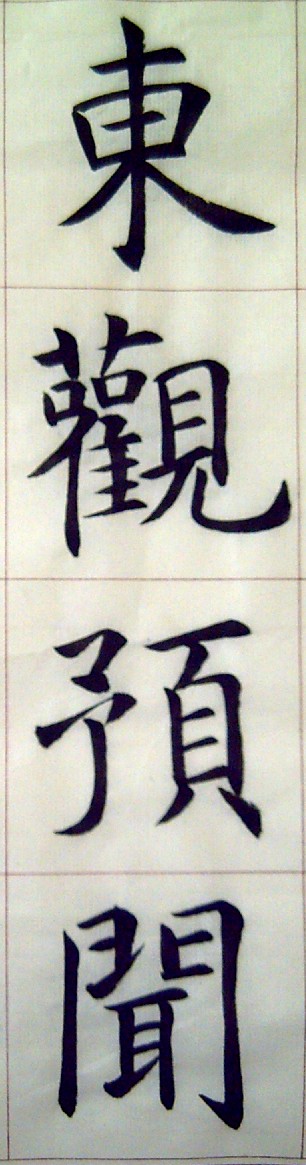 東觀預聞